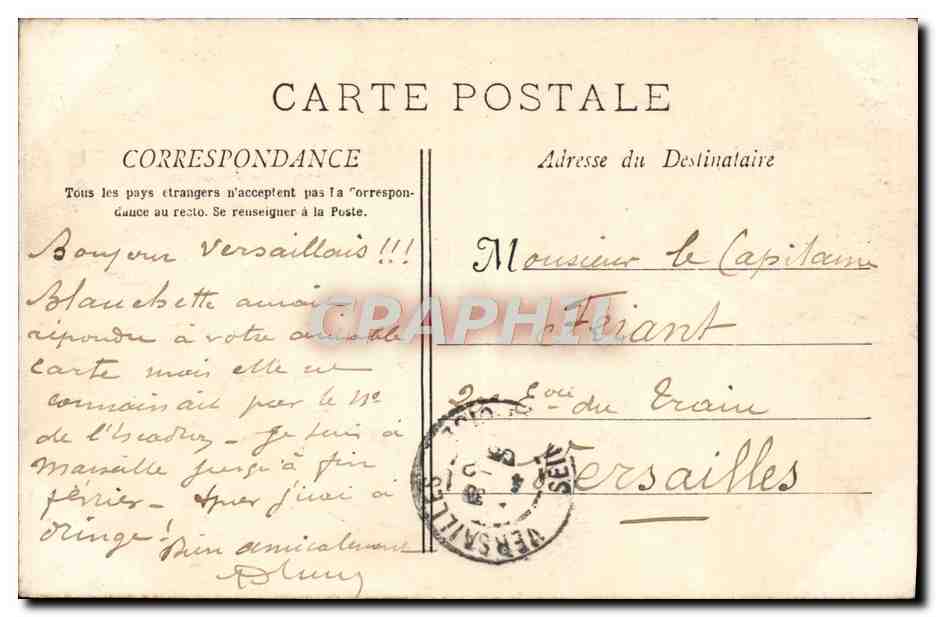 CARTE POSTALE
CORRESPONDANCE
Tous les pays étrangers n'acceptent pas la Correspon-
dance au recto. Se renseigner à la Poste.
Bonjour Versaillais !!!
Blanchette aurait
répondu à votre aimable
carte mais elle ne
connaissait pas le No
de l'Escadron - Je suis à
Marseille jusqu'à fin
février - puis j'irai à
!
Bien amicalement
Adresse du Destinataire
Monsieur le Capitaine
Feriant
2e Eon du Train
Versailles
VERSAILLES
SEINE
CPAPHIL